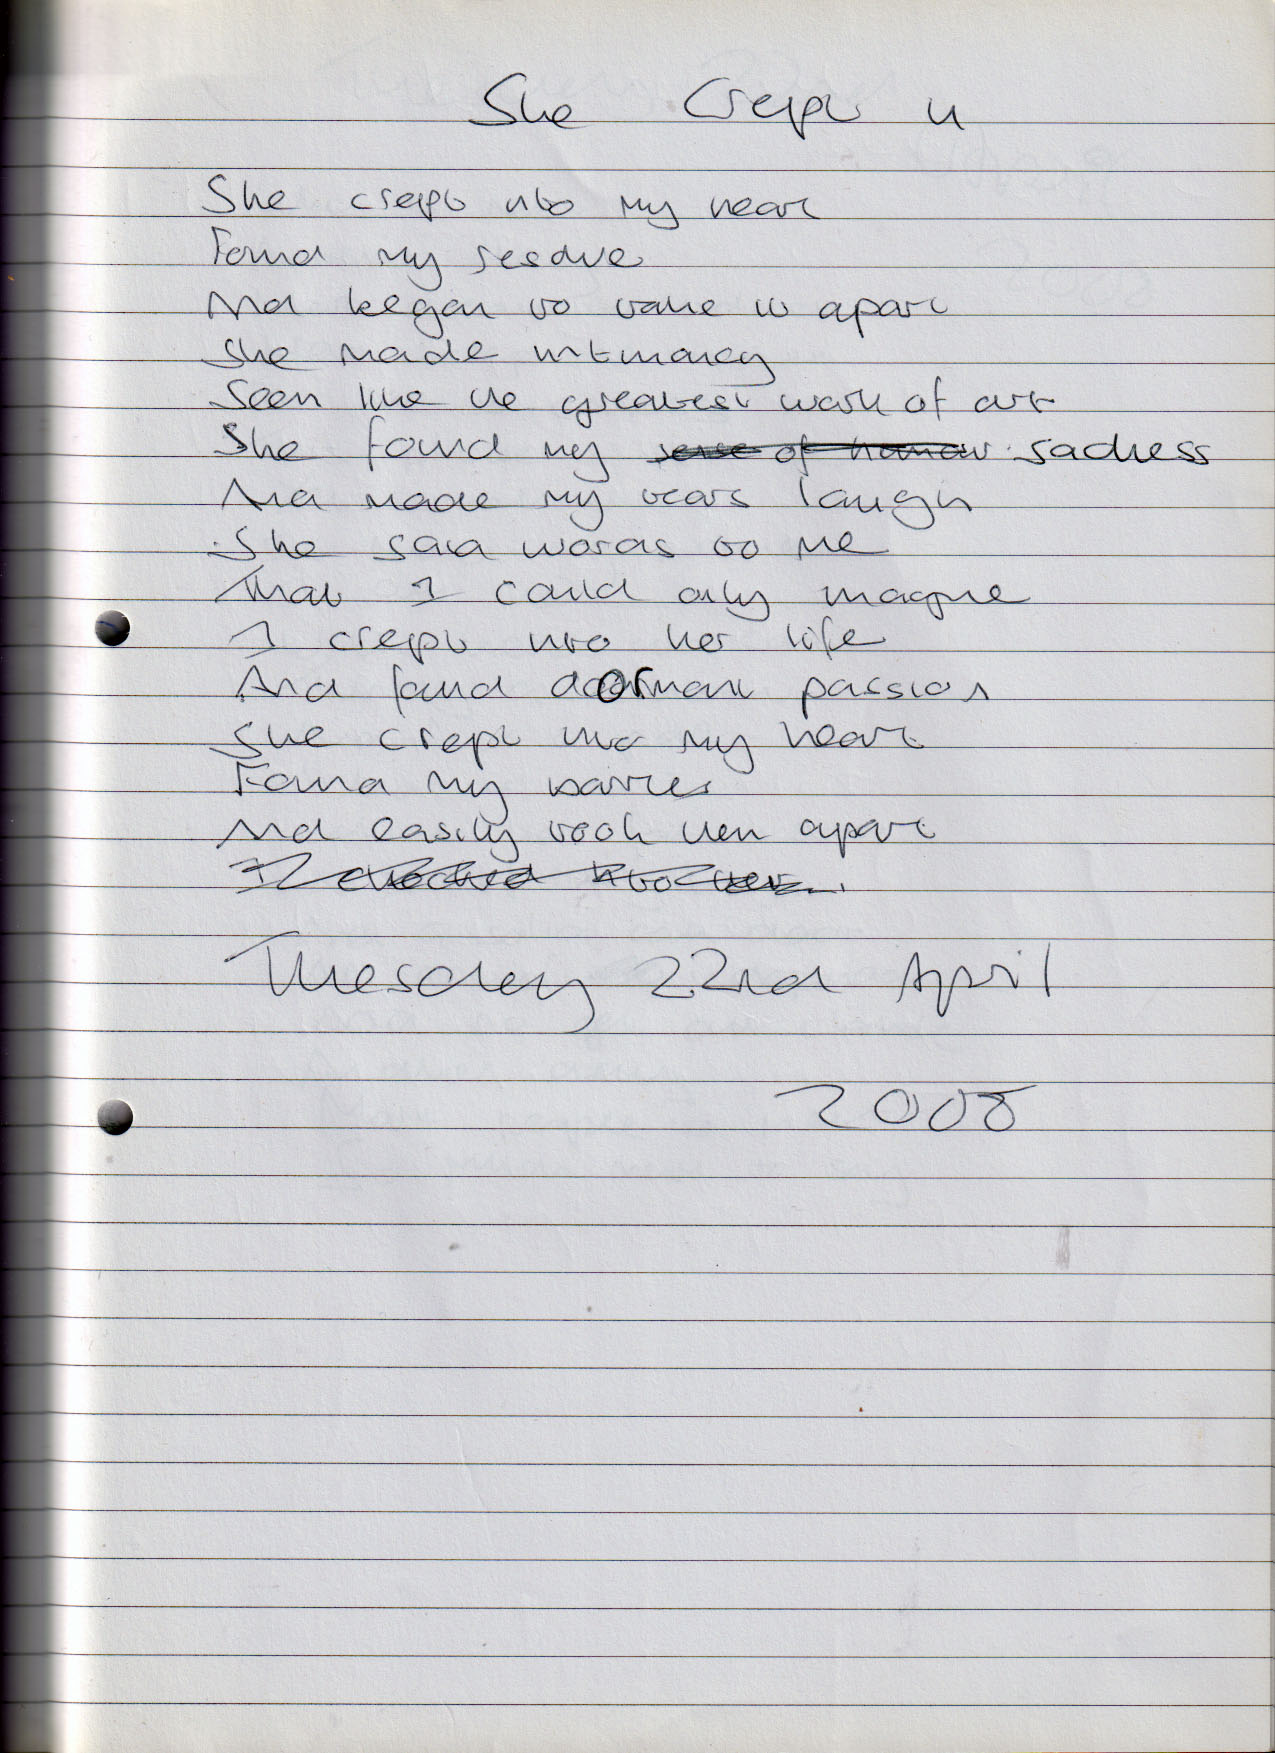 She Crept in
She crept into my heart
Found my resolve
And began to take it apart
She made intimacy
Seem like the greatest work of art
She found my sense of humour sadness
And made my tears laugh
She said words to me
That I could only imagine
I crept into her life
And found dormant passion
She crept into my heart
Found my barriers
And easily took them apart
Tuesday 22nd April
2008